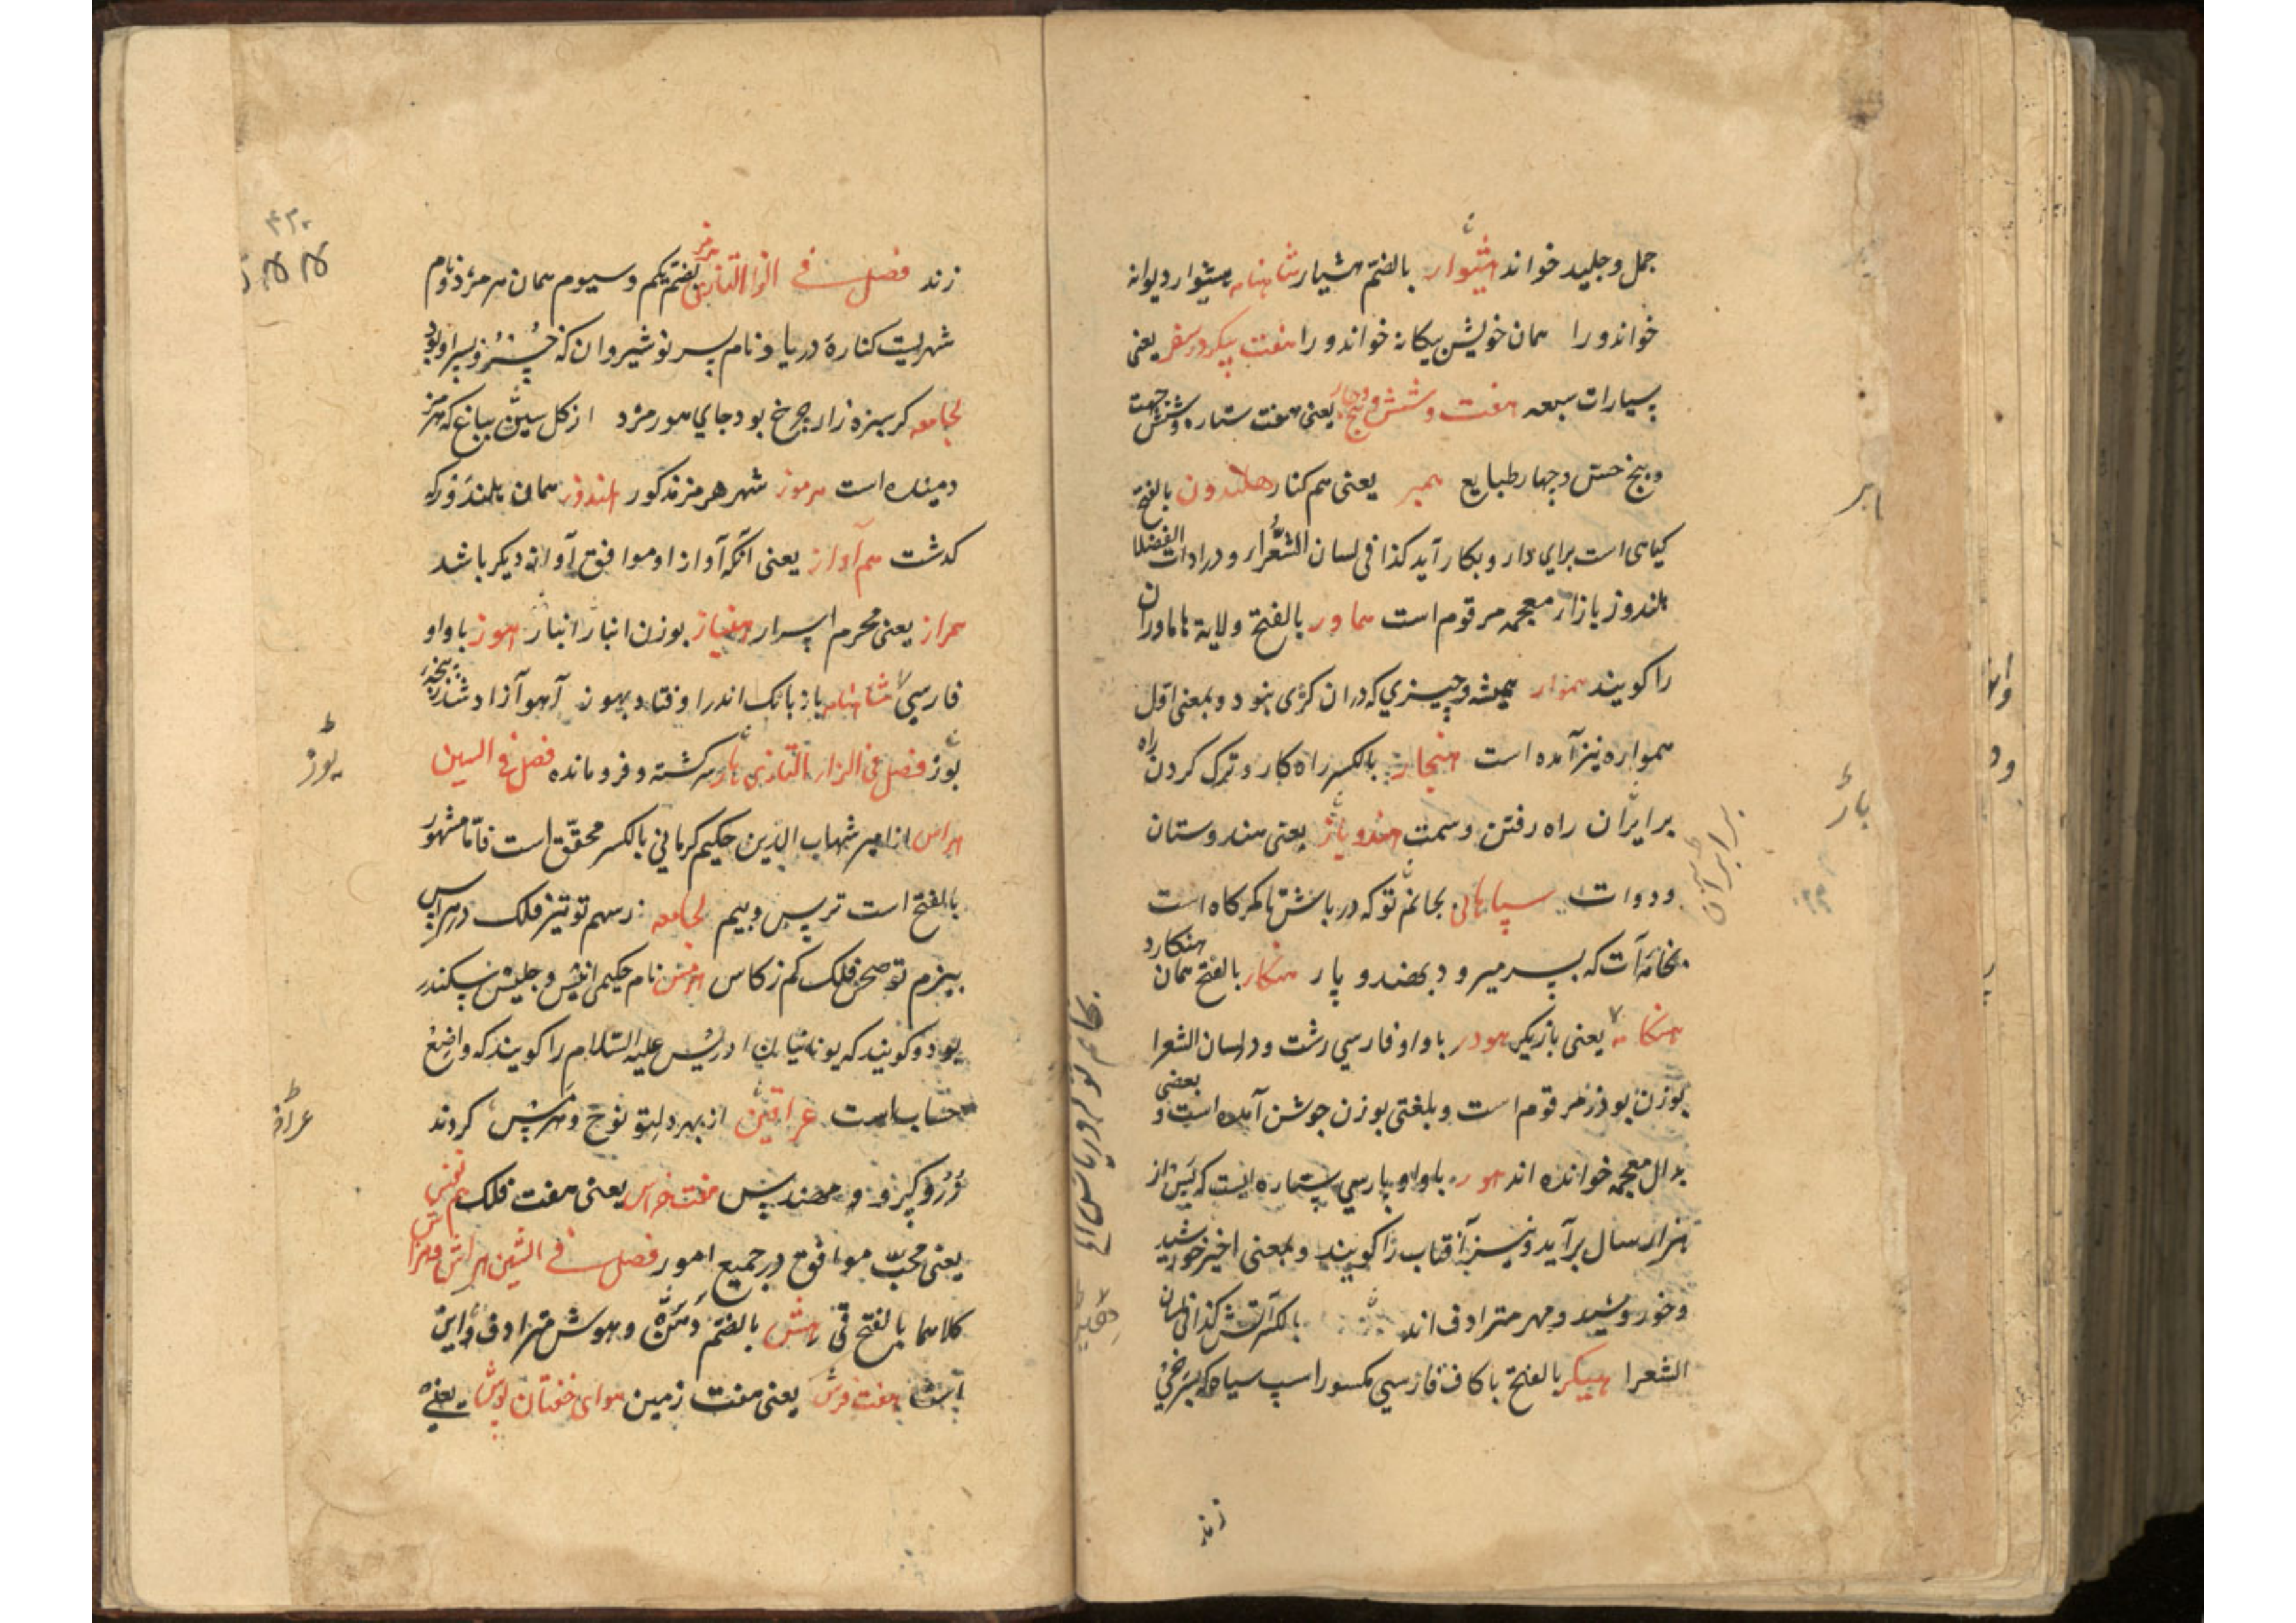 جمل و جلید خواند هشیوار بالضم هشیار شاهنامه هشیوار دیوانه
خواند ورا همان خویش بیکانه خواند ورا هفت پیکر در سفر یعنی
سیارات سبعه هفت و شش و پنج و چهار یعنی هفت ستاره و شش جهت
و پنج حس و چهار طبایع همبر یعنی هم کنار هلندون بالفتح
کیاهی است برای دارو بکار آید کذا فی لسان الشعرا و در ادات الفضلا
هلندوز بازار معجمه مرقوم است هماور بالفتح ولایة هاماوران
را کویند هموار همیشه و چیزي که دران کژی نبود و بمعنی اول
همواره نیز آمده است هنجار بالکسر راه کار و ترک کردن راه
برابران راه رفتن و سمت هندوبار یعنی هندوستان
و دوات سپاهانی بجانم تو که در باش تا کمرکاه است
بخامه‌ات که بسر میرود بهندو بار هنکار بالفتح همان هنکارد
هنکامه یعنی بازیکر هودر با واو فارسي رشت و در لسان الشعرا
بوزن بودر مرقوم است و بلغتی بوزن جوشن آمده است و بعضی
بدال معجمه خوانده اند هور با واو پارسي ستاره ایست که پس از
هزار سال برآید و نیز آفتاب را کویند و بمعنی اخیر خورشید
و خور و شید و مهر مترادف اند بالکسر آتش کذا فی لسان
الشعرا هیکر بالفتح با کاف فارسي مکسور اسپ سیاه که بسرخي
زند
برابران
بار
زند فصل في الزا التازی هرمز بضم یکم و سیوم همان هرمزد و نام
شهریست کناره دریا و نام پسر نوشیروان که خسرو پسر او بود
لجامعه کر سبزه زار چرخ بود جاي هورمزد از کل سپن بباغ که هرمز
دمیده است هرموز شهر هرمز مذکور هلندوز همان هلندور که
کذشت هم آواز یعنی آنکه آواز او موافق آواز دیکر باشد
همراز یعنی محرم اسرار هنباز بوزن انباز انباز هوز با واو
فارسي شاهنامه باز بانک اندر اوفتاد بهوز آهو آزاد شد ز پنجه
یوز فصل في الزار التازی هاژ سرکشته و فرومانده فصل في السین
هراس از امیر شهاب الدین حکیم کرمانی بالکسر محقق است فاما مشهور
بالفتح است ترس و بیم لجامعه ز سهم تو تیز فلک در هراس
ببزم تو صحن فلک کم ز کاس هرمس نام حکیمی انیس و جلیس سکندر
بود و کویند که یونانیان ادریس علیه السلام را کویند که واضع
حساب است عراقین از بهر دلتو نوح و هرمس کردند
هفت خراس یعنی هفت فلک هم نفس
یعنی محب موافق در جمیع امور فصل في الشین هراش و هراش
کلاهما بالفتح قی هش بالضم و هوش مترادف
است هفت فرش یعنی هفت زمین هوای خفتان پوش یعنی
یوز